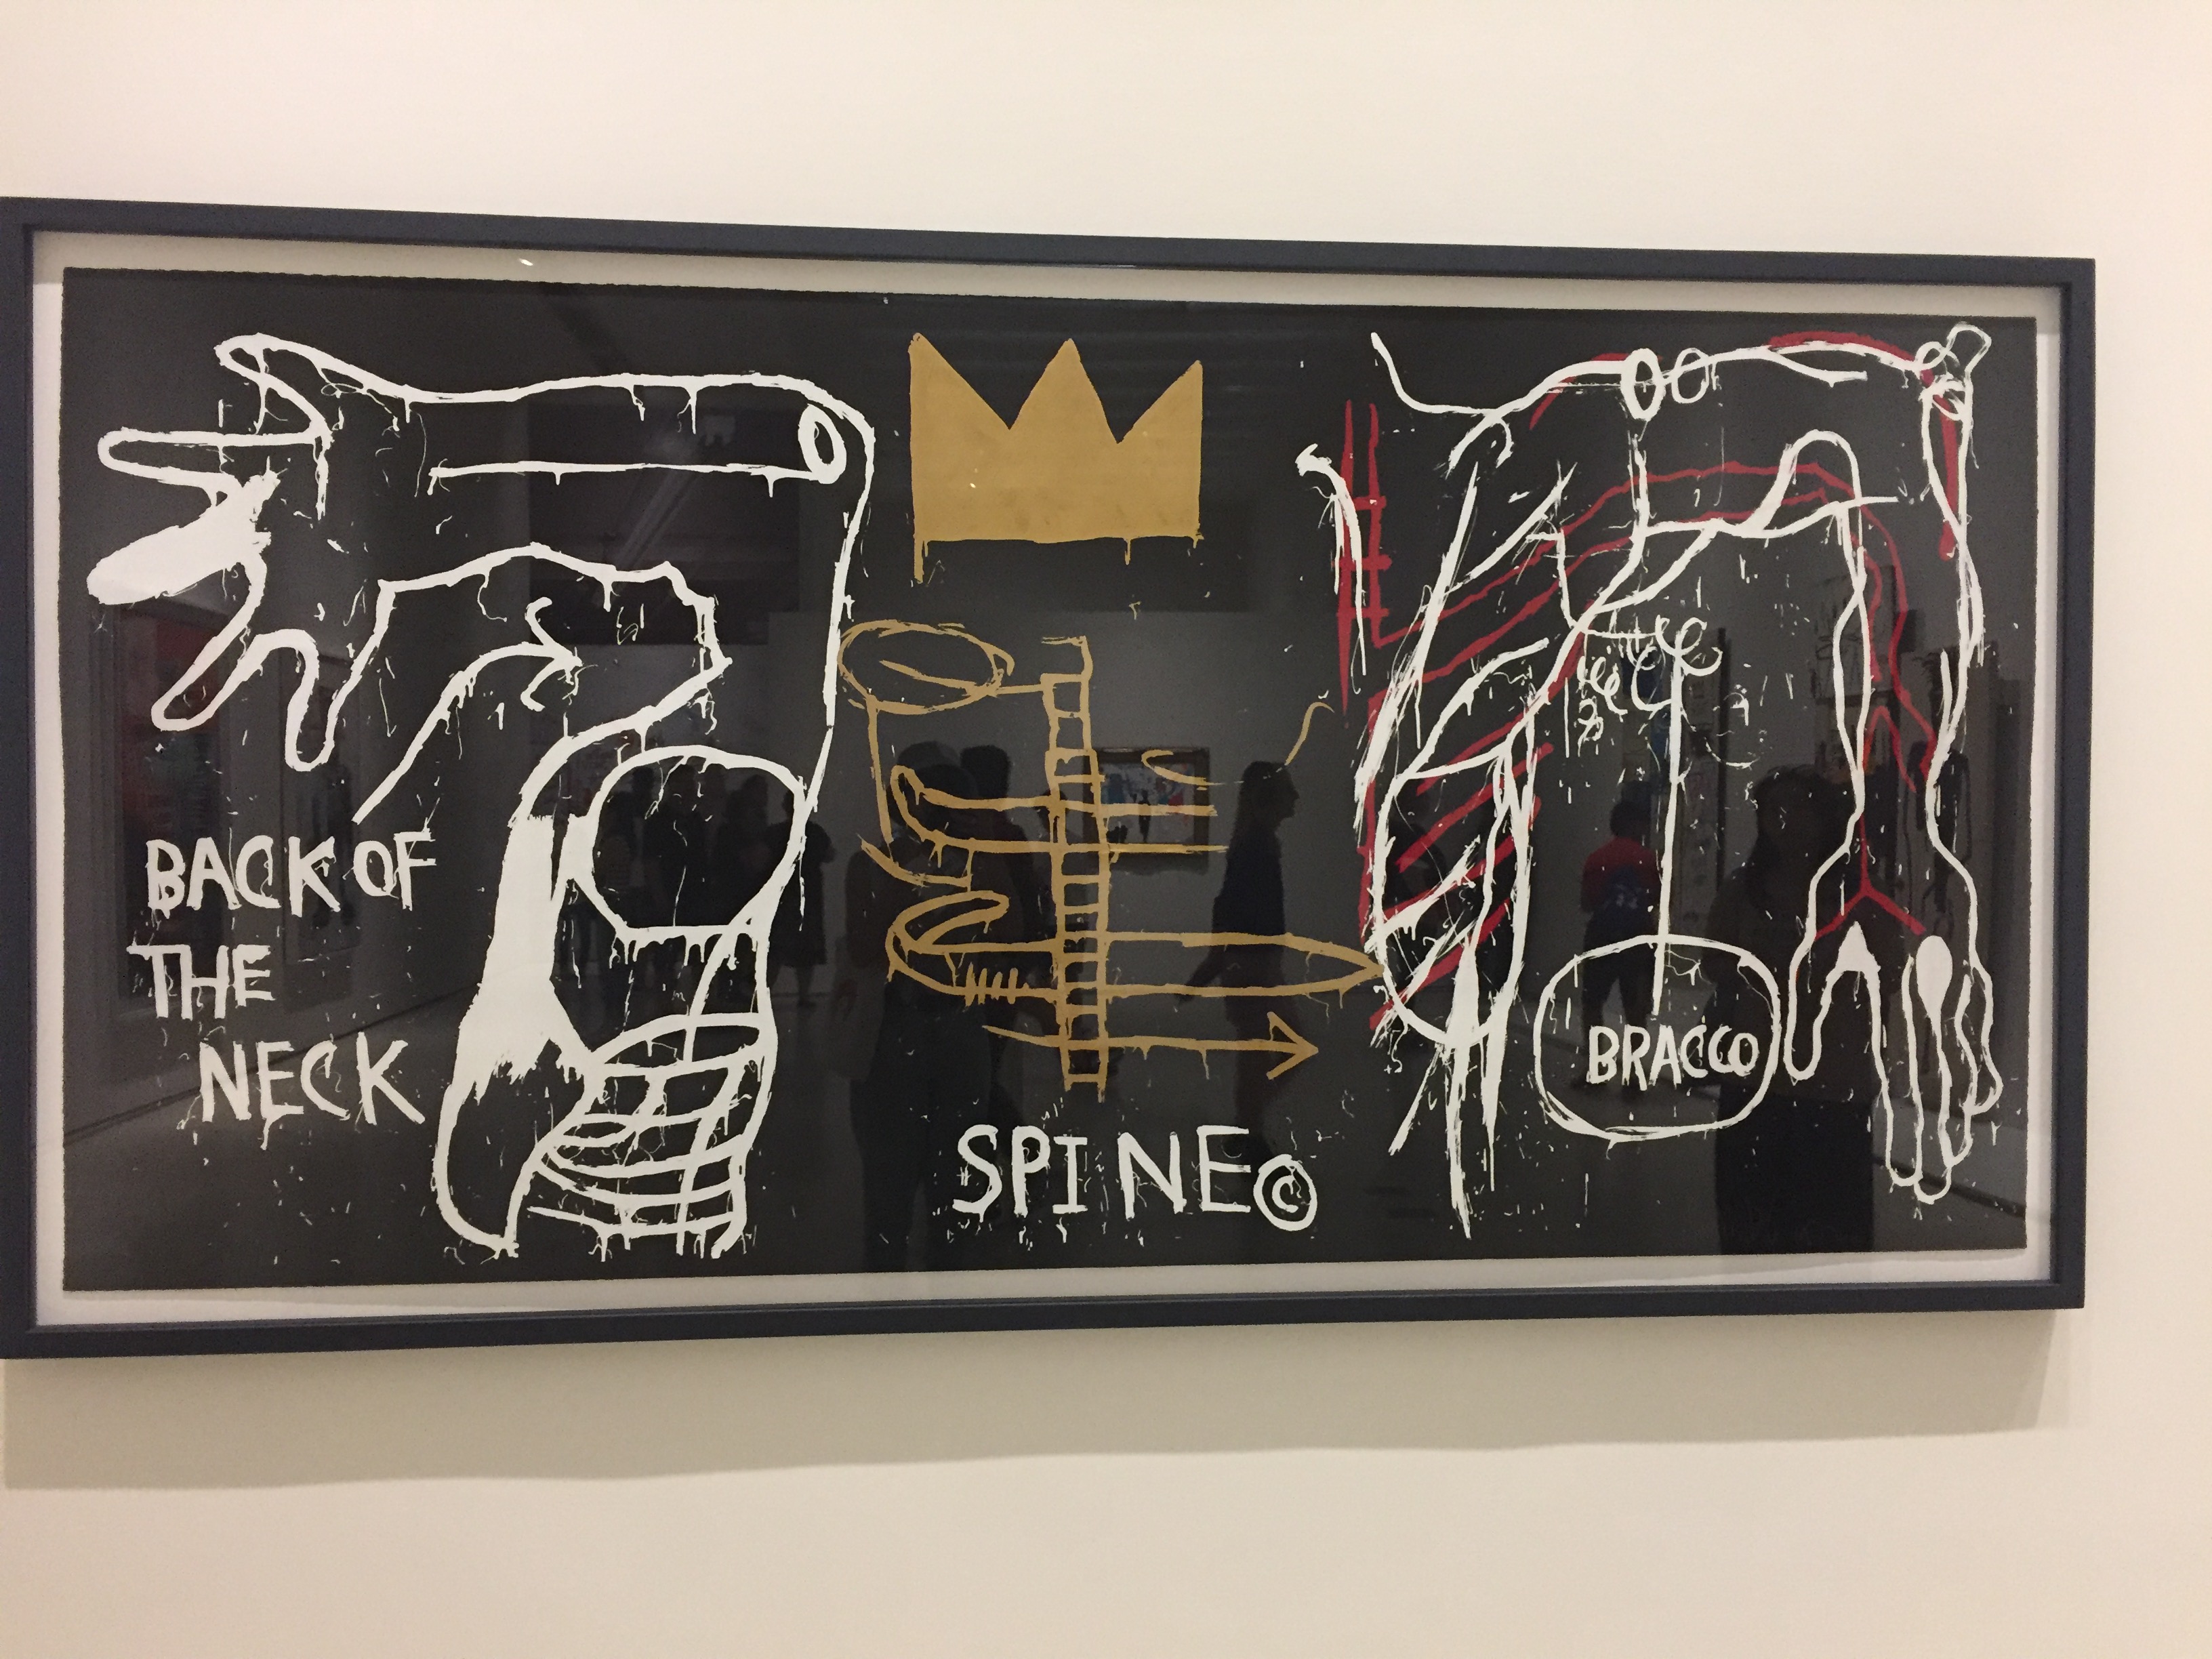 BACK OF
THE
NECK
SPINE©
BRACCO